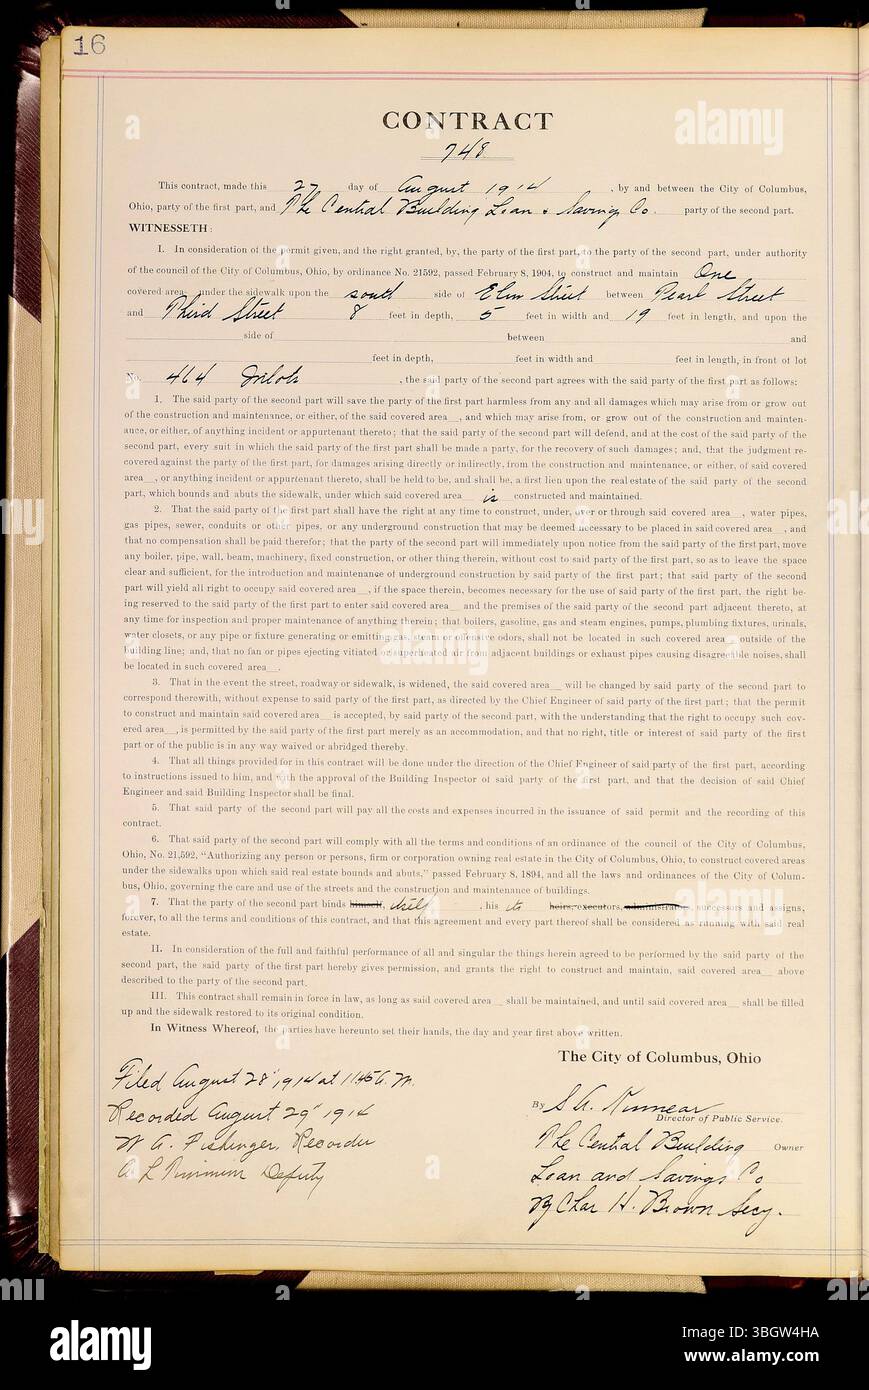 16
CONTRACT
748
This contract, made this 27 day of August 1914, by and between the City of Columbus,
Ohio, party of the first part, and The Central Building Loan & Savings Co. party of the second part.
WITNESSETH:
I. In consideration of the permit given, and the right granted, by, the party of the first part, to the party of the second part, under authority
of the council of the City of Columbus, Ohio, by ordinance No. 21592, passed February 8, 1904, to construct and maintain One
covered area under the sidewalk upon the south side of Elm Street between Pearl Street
and Third Street 8 feet in depth, 5 feet in width and 19 feet in length, and upon the
side of between and
feet in depth, feet in width and feet in length, in front of lot
No. 464 Inlots, the said party of the second part agrees with the said party of the first part as follows:
1. The said party of the second part will save the party of the first part harmless from any and all damages which may arise from or grow out
of the construction and maintenance, or either, of the said covered area__, and which may arise from, or grow out of the construction and mainten-
ance, or either, of anything incident or appurtenant thereto; that the said party of the second part will defend, and at the cost of the said party of the
second part, every suit in which the said party of the first part shall be made a party, for the recovery of such damages; and, that the judgment re-
covered against the party of the first part, for damages arising directly or indirectly, from the construction and maintenance, or either, of said covered
area__, or anything incident or appurtenant thereto, shall be held to be, and shall be, a first lien upon the real estate of the said party of the second
part, which bounds and abuts the sidewalk, under which said covered area__ is constructed and maintained.
2. That the said party of the first part shall have the right at any time to construct, under, over or through said covered area__, water pipes,
gas pipes, sewer, conduits or other pipes, or any underground construction that may be deemed necessary to be placed in said covered area__, and
that no compensation shall be paid therefor; that the party of the second part will immediately upon notice from the said party of the first part, move
any boiler, pipe, wall, beam, machinery, fixed construction, or other thing therein, without cost to said party of the first part, so as to leave the space
clear and sufficient, for the introduction and maintenance of underground construction by said party of the first part; that said party of the second
part will yield all right to occupy said covered area__, if the space therein, becomes necessary for the use of said party of the first part, the right be-
ing reserved to the said party of the first part to enter said covered area__ and the premises of the said party of the second part adjacent thereto, at
any time for inspection and proper maintenance of anything therein; that boilers, gasoline, gas and steam engines, pumps, plumbing fixtures, urinals,
water closets, or any pipe or fixture generating or emitting gas, steam or offensive odors, shall not be located in such covered area__ outside of the
building line; and, that no fan or pipes ejecting vitiated or superheated air from adjacent buildings or exhaust pipes causing disagreeable noises, shall
be located in such covered area__.
3. That in the event the street, roadway or sidewalk, is widened, the said covered area__ will be changed by said party of the second part to
correspond therewith, without expense to said party of the first part, as directed by the Chief Engineer of said party of the first part; that the permit
to construct and maintain said covered area__ is accepted, by said party of the second part, with the understanding that the right to occupy such cov-
ered area__, is permitted by the said party of the first part merely as an accommodation, and that no right, title or interest of said party of the first
part or of the public is in any way waived or abridged thereby.
4. That all things provided for in this contract will be done under the direction of the Chief Engineer of said party of the first part, according
to instructions issued to him, and with the approval of the Building Inspector of said party of the first part, and that the decision of said Chief
Engineer and said Building Inspector shall be final.
5. That said party of the second part will pay all the costs and expenses incurred in the issuance of said permit and the recording of this
contract.
6. That said party of the second part will comply with all the terms and conditions of an ordinance of the council of the City of Columbus,
Ohio, No. 21,592, "Authorizing any person or persons, firm or corporation owning real estate in the City of Columbus, Ohio, to construct covered areas
under the sidewalks upon which said real estate bounds and abuts," passed February 8, 1894, and all the laws and ordinances of the City of Colum-
bus, Ohio, governing the care and use of the streets and the construction and maintenance of buildings.
7. That the party of the second part binds himself, itself, his its heirs, executors, administrators, successors and assigns,
forever, to all the terms and conditions of this contract, and that this agreement and every part thereof shall be considered as running with said real
estate.
II. In consideration of the full and faithful performance of all and singular the things herein agreed to be performed by the said party of the
second part, the said party of the first part hereby gives permission, and grants the right to construct and maintain, said covered area__ above
described to the party of the second part.
III. This contract shall remain in force in law, as long as said covered area__ shall be maintained, and until said covered area__ shall be filled
up and the sidewalk restored to its original condition.
In Witness Whereof, the parties have hereunto set their hands, the day and year first above written.
The City of Columbus, Ohio
Filed August 28" 1914 at 11:45 A. M.
Recorded August 29" 1914
By S. A. Kinnear
Director of Public Service.
W. A. Pishinger, Recorder
The Central Building Owner
A L Deputy
Loan and Savings Co
By Chas H. Brown Secy.
alamy
Image ID: 3BGW4HA
www.alamy.com